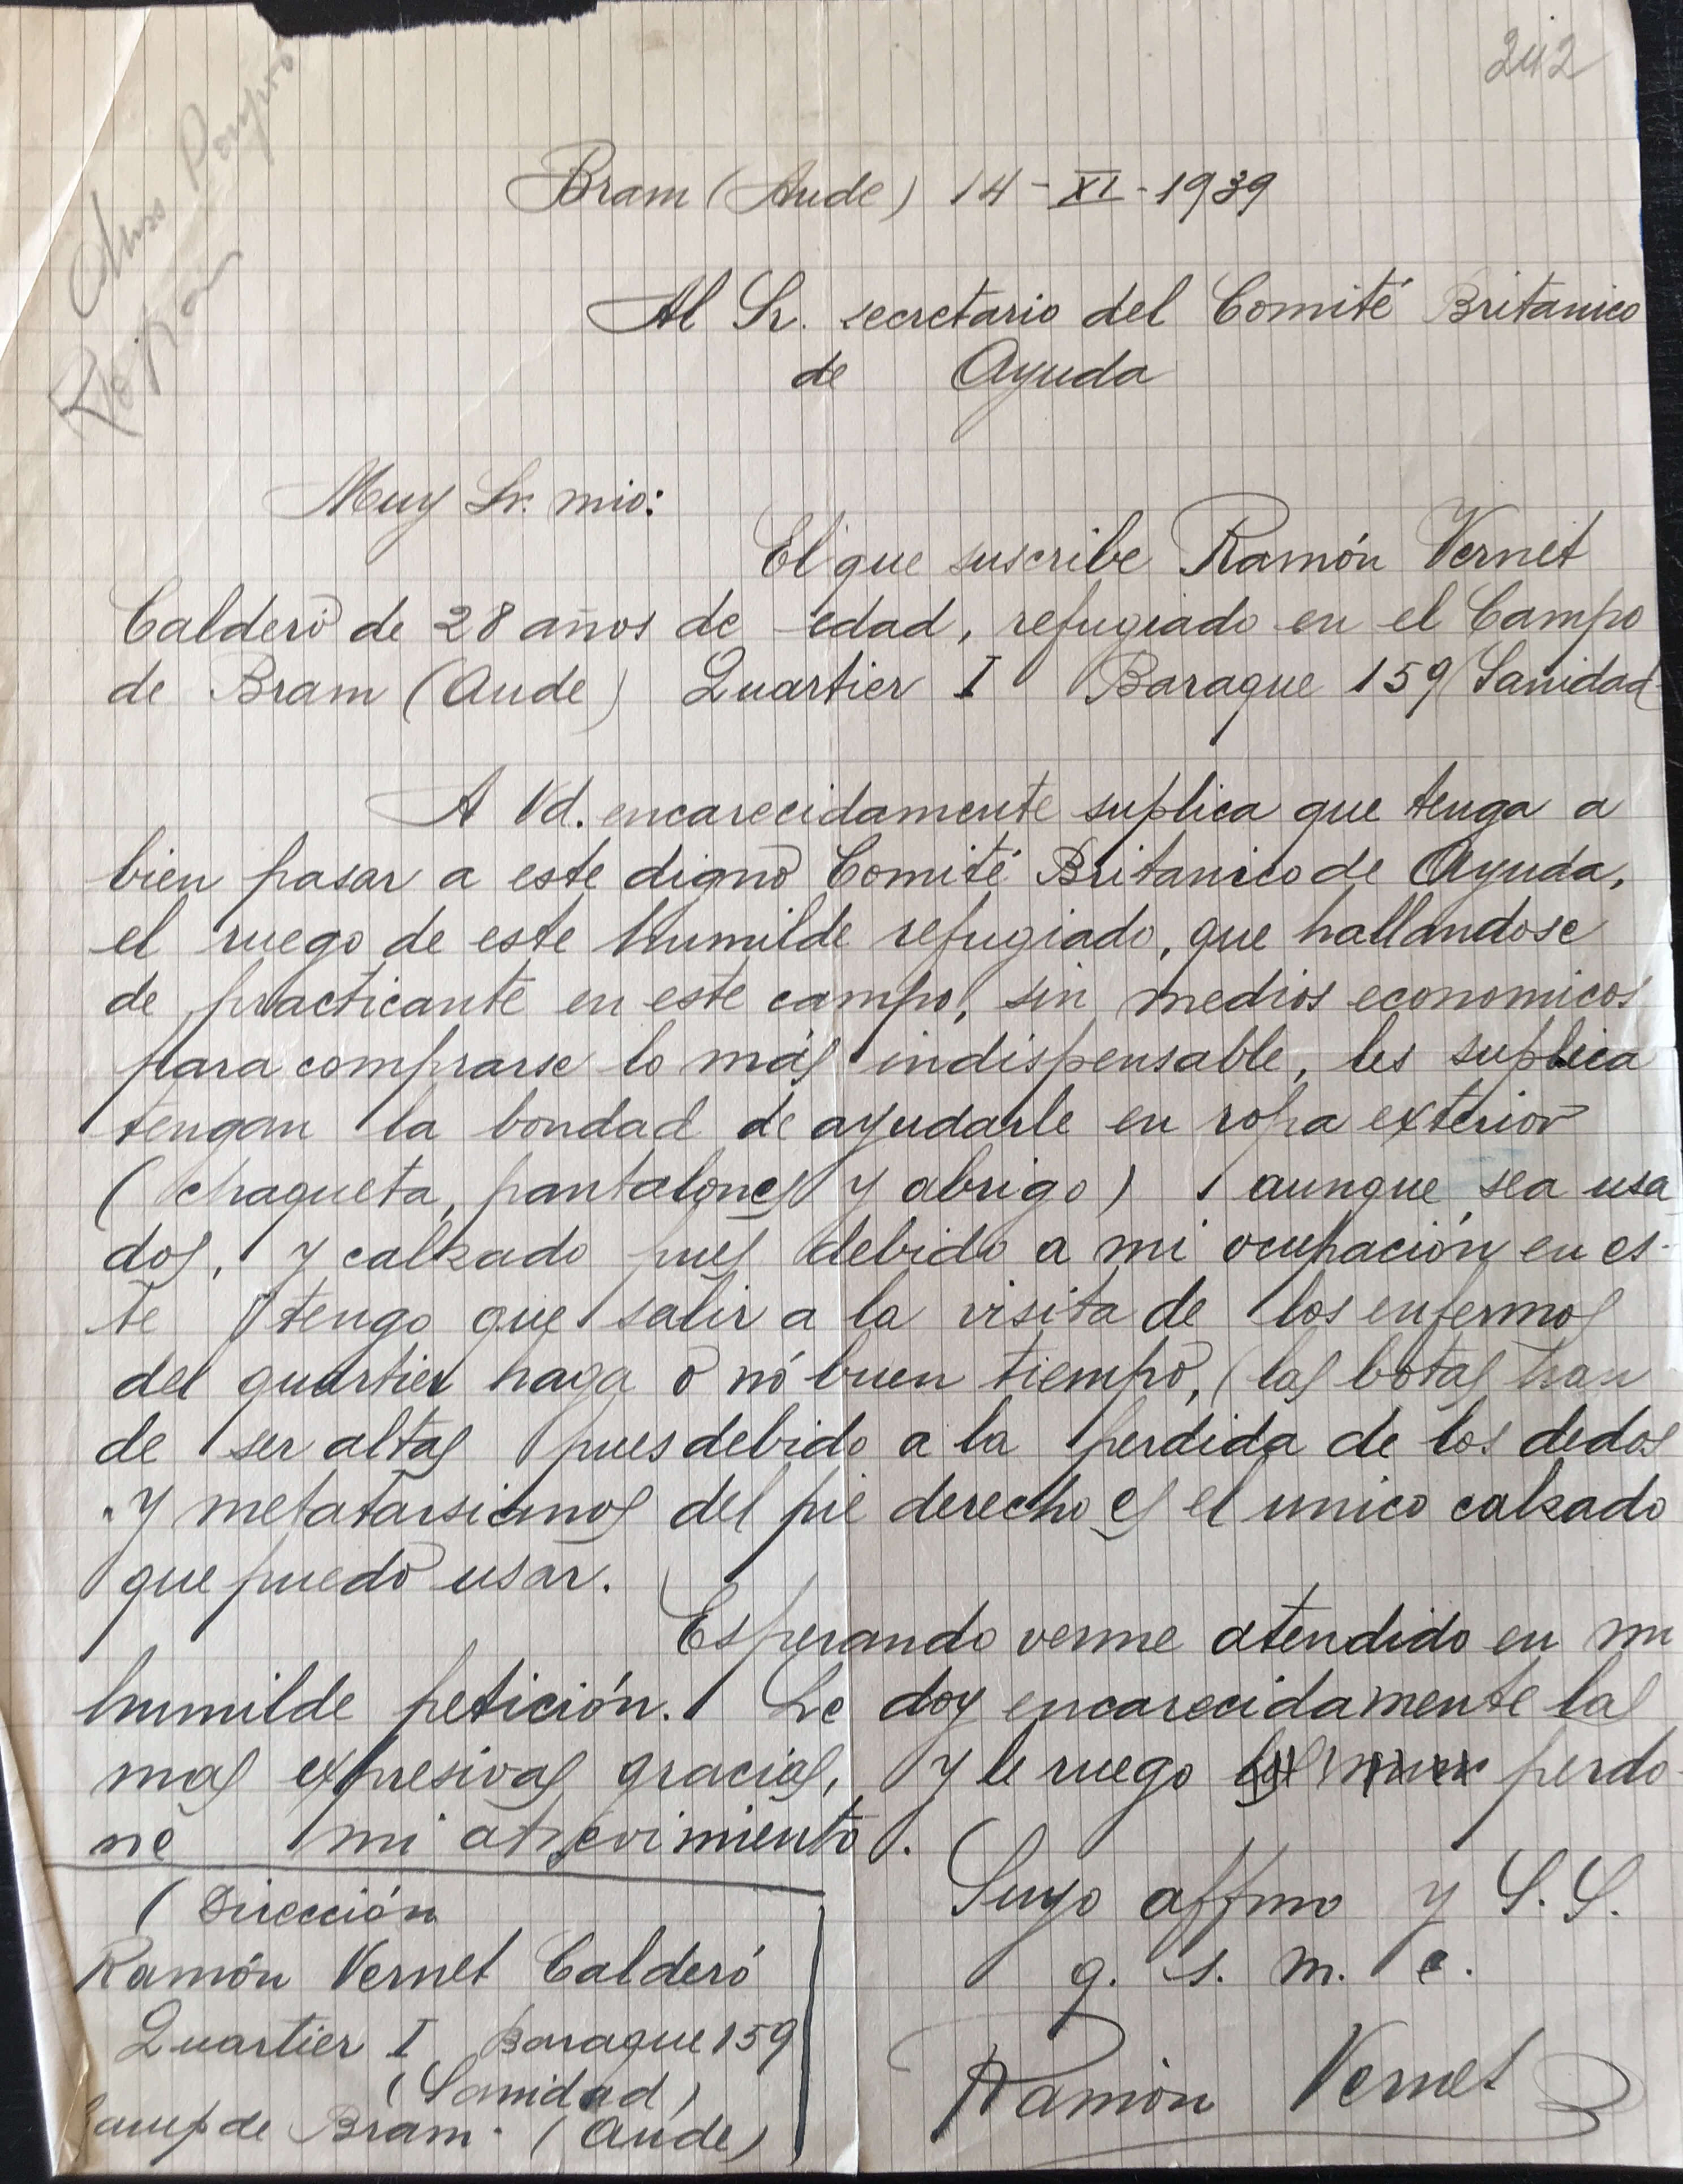 242
Bram (Aude) 14-XI-1939
Al Sr. secretario del Comité Britanico
de Ayuda
Muy Sr. mio:
El que suscribe Ramón Vernet
Calderó de 28 años de edad, refugiado en el Campo
de Bram (Aude) Quartier I Baraque 159 Sanidad
A Vd. encarecidamente suplica que tenga a
bien pasar a este digno Comité Britanico de Ayuda,
el ruego de este humilde refugiado, que hallandose
de practicante en este campo, sin medios economicos
para comprarse lo más indispensable, les suplica
tengan la bondad de ayudarle en ropa exterior
(chaqueta, pantalones y abrigo), aunque sea usa
dos, y calzado pues debido a mi ocupación en es-
te tengo que salir a la visita de los enfermos
del quartier haga o nó buen tiempo, (las botas han
de ser altas pues debido a la perdida de los dedos
y metatarsianos del pie derecho es el unico calzado
que puedo usar.
Esperando verme atendido en mi
humilde petición. Le doy encarecidamente las
mas expresivas gracias, y le ruego perdo-
ne mi atrevimiento.
Suyo affmo y S.S.
q. s. m. e.
Ramón Vernet
(Dirección
Ramón Vernet Calderó
Quartier I Baraque 159
(Sanidad)
Camp de Bram. (Aude)